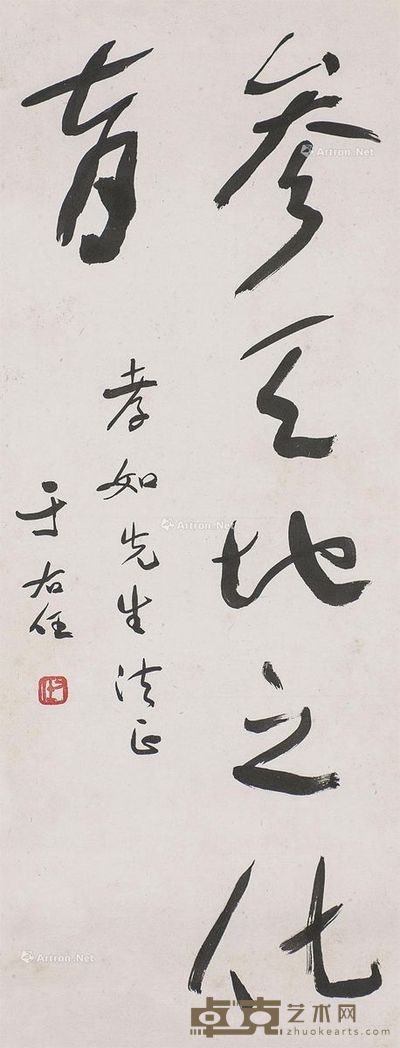 参天地之化
育
孝如先生法正
于右任
Artron.Net
Artron.Net
Artron.Net
卓克艺术网
zhuokearts.com